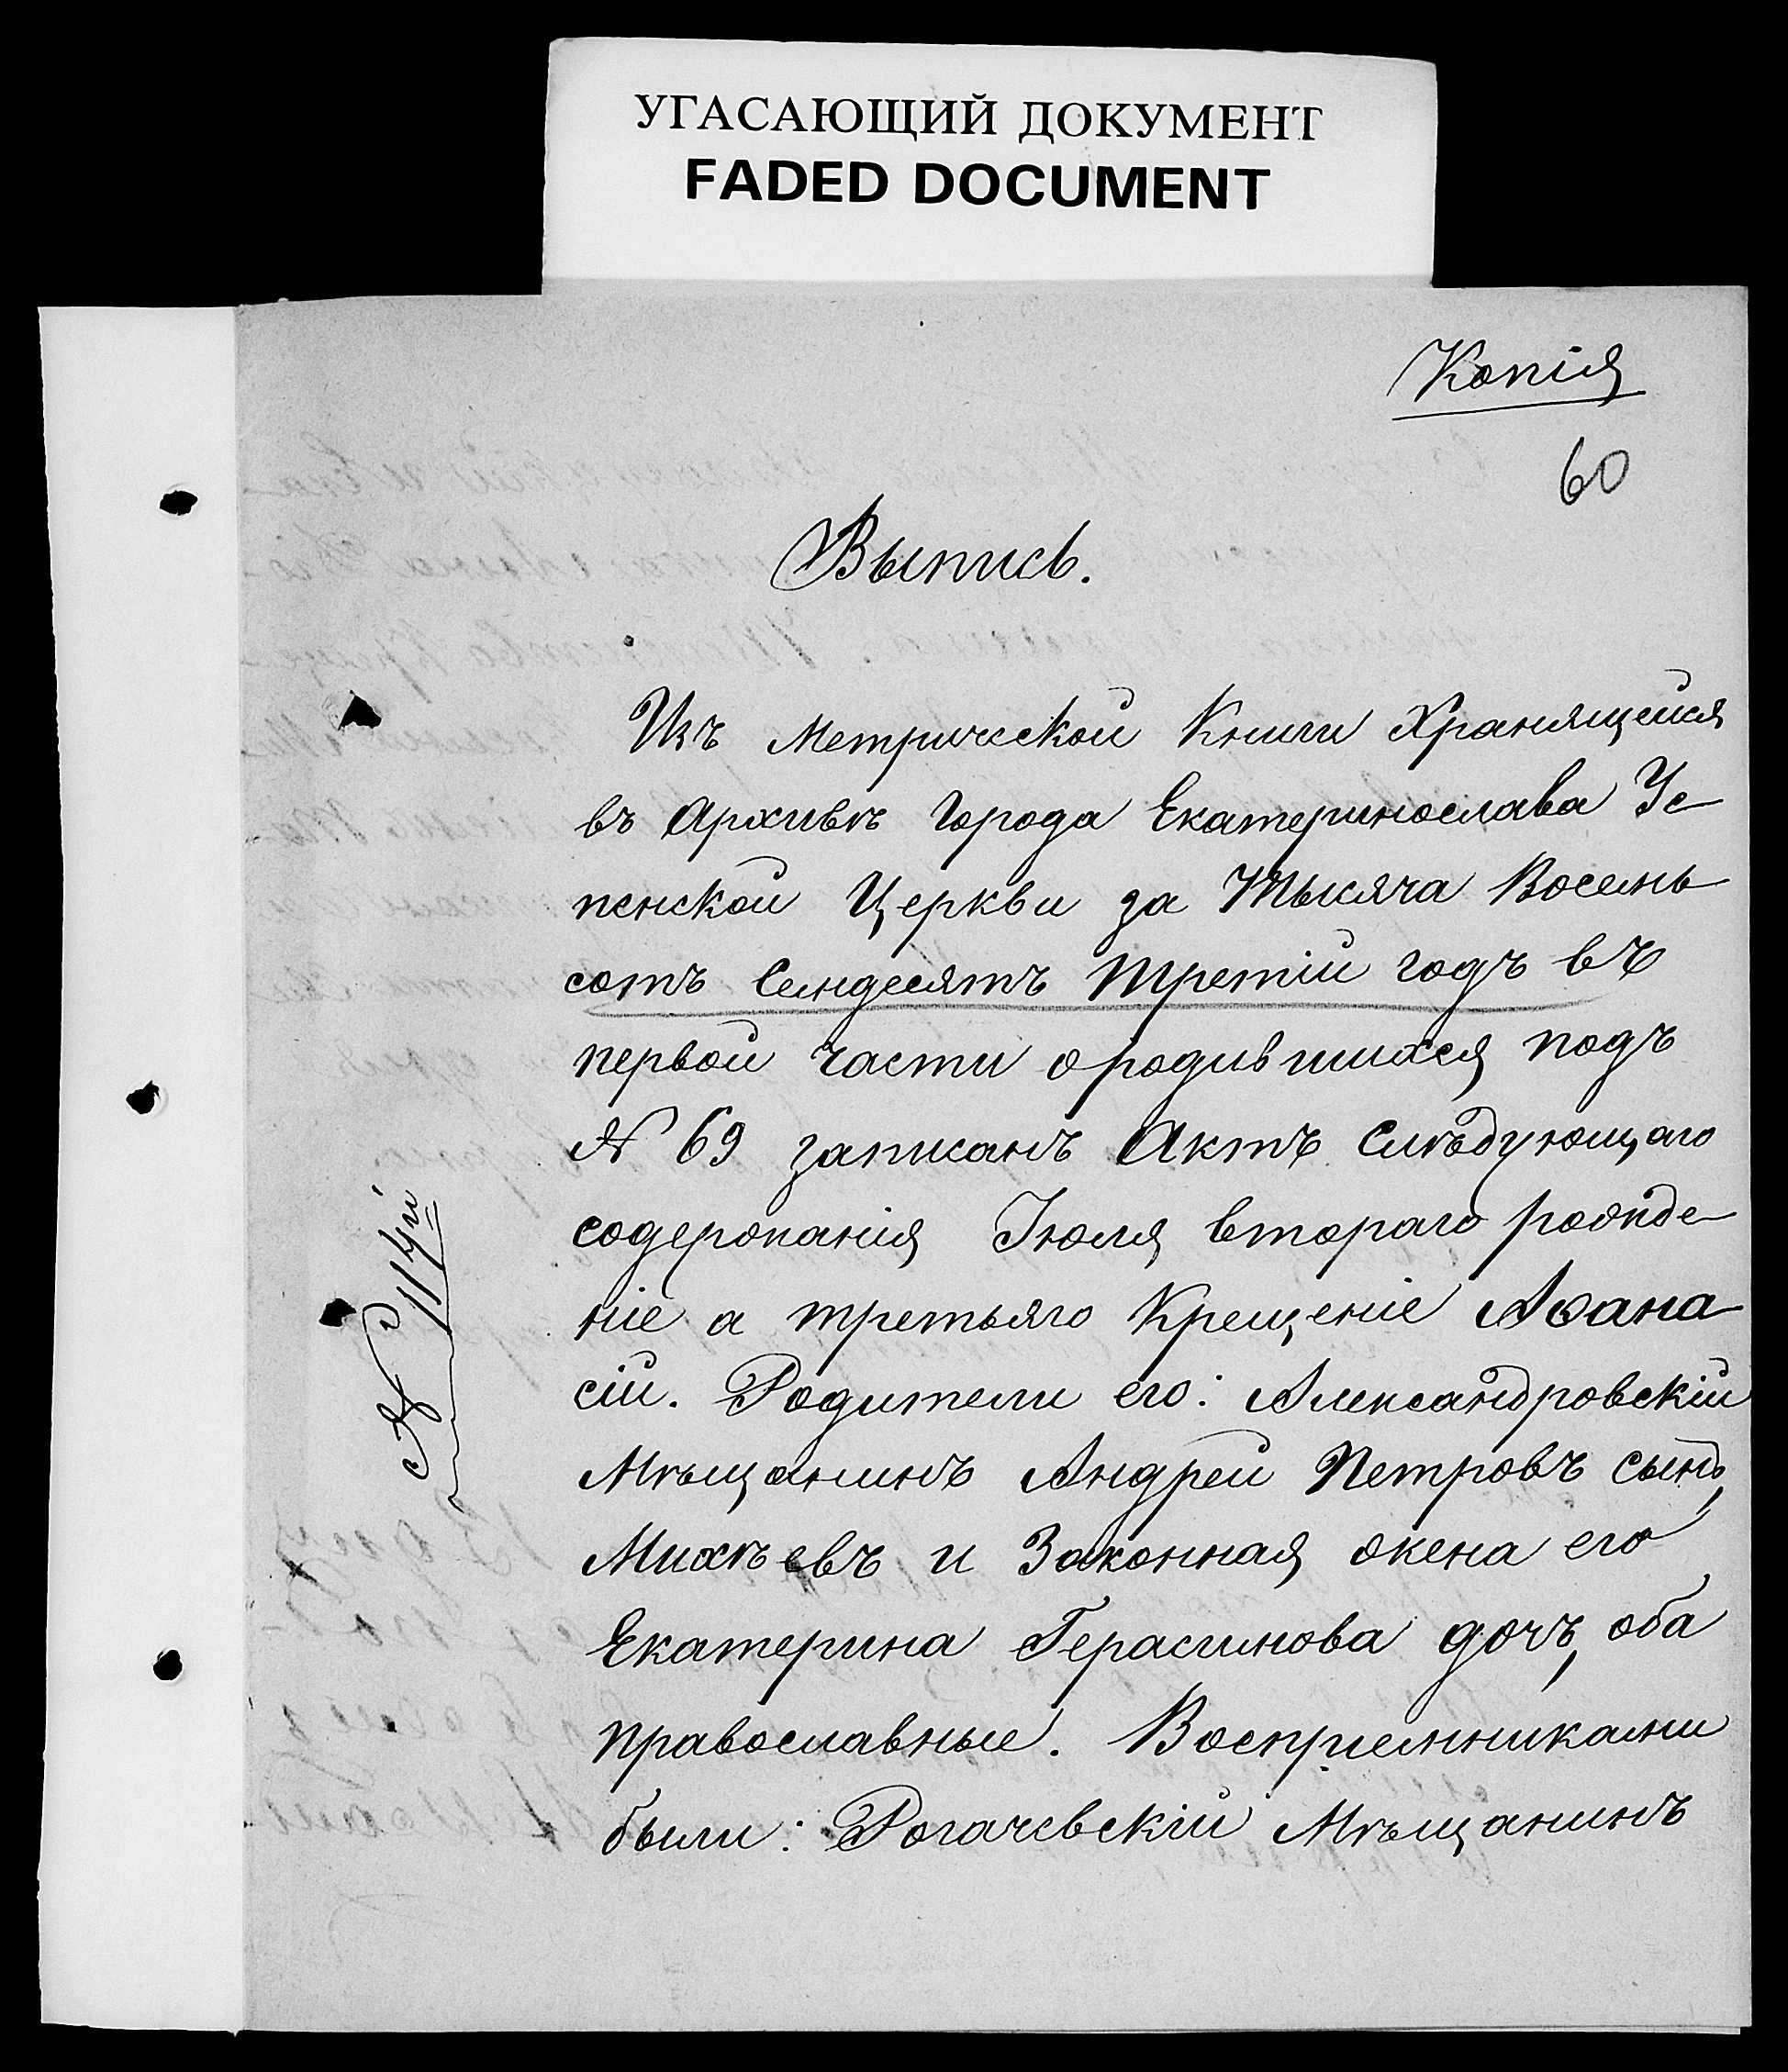 УГАСАЮЩИЙ ДОКУМЕНТ
FADED DOCUMENT
Копія
60
Выпись.
Изъ Метрической Книги Хранящейся
въ Архивѣ Города Екатеринослава Ус-
пенской Церкви за Тысяча Восемь
сотъ Семдесятъ Третій годъ въ
первой части о родившихся подъ
№ 69 записанъ Актъ Слѣдующаго
содержанія Іюля втораго рожде-
ніе а третьяго Крещеніе Аѳана-
сій. Родители его: Александровскій
Мѣщанинъ Андрей Петровъ сынъ,
Михѣевъ и Законная жена его
Екатерина Герасимова дочъ, оба
православные. Воспріемниками
были: Рогачевскій Мѣщанинъ